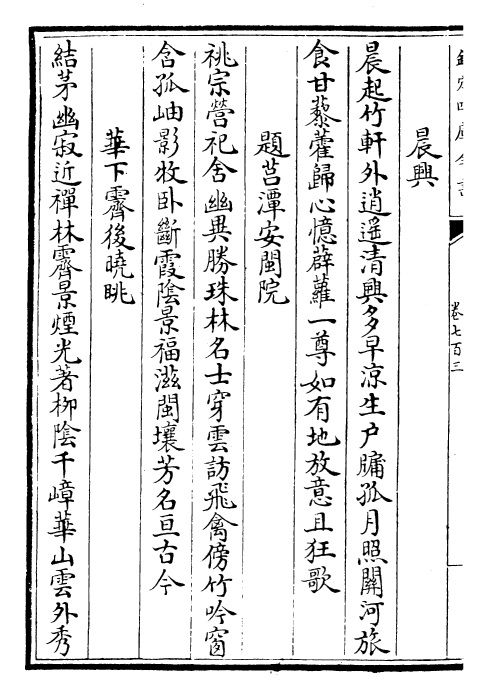 欽定四庫全書
卷七百三
晨興
晨起竹軒外逍遙清興多早涼生戶牖孤月照關河旅
食甘藜藿歸心憶薜蘿一尊如有地放意且狂歌
題莒潭安閩院
祧宗營祀舍幽異勝珠林名士穿雲訪飛禽傍竹吟窗
含孤岫影牧卧斷霞陰景福滋閩壤芳名亘古今
華下霽後曉眺
結茅幽寂近禪林霽景煙光著柳陰千嶂華山雲外秀